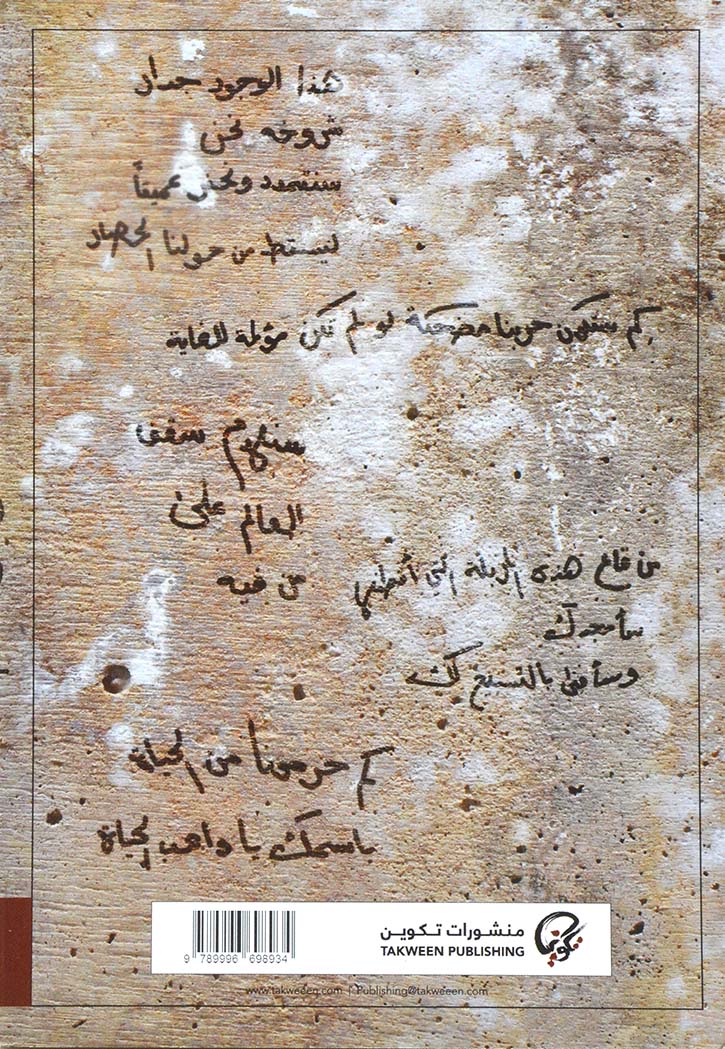 هذا الوجود جدار
شروخه نحن
سنتمدد ونحن عميقاً
ليسقط من حولنا الحصار
كم ستكون حربنا مضحكة لو لم تكن مؤلمة للغاية
سنهدم سقف
العالم على
من فيه
من قاع هذه المزبلة التي
سأمجدك
وسأفنى بالتسبيح لك
كم حرمونا من الحياة
باسمك يا واهب الحياة
منشورات تكوين
TAKWEEN PUBLISHING
تكوين
9 789996 698934
www.takweeen.com | Publishing@takweeen.com